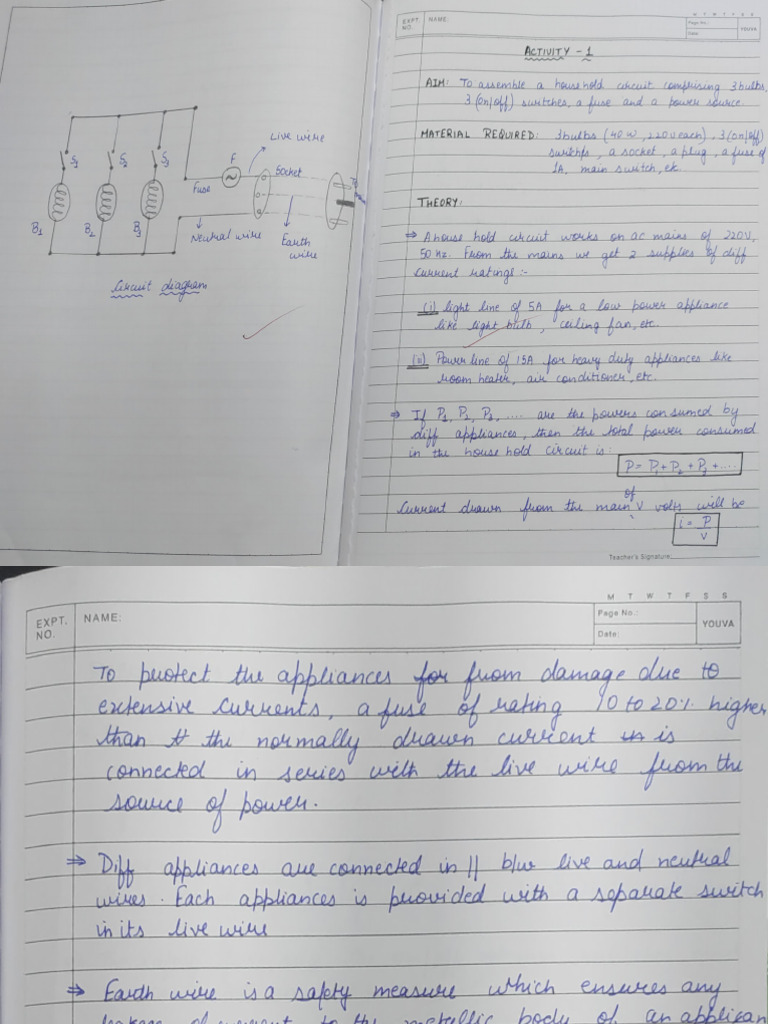 S1
S2
S3
B1
B2
B3
F
Fuse
Live wire
Socket
Neutral wire
Earth
wire
Circuit diagram
EXPT.
NO.
NAME:
M T W T F S S
Page No.:
Date:
YOUVA
ACTIVITY - 1
AIM: To assemble a household circuit comprising 3 bulbs,
3 (on/off) switches, a fuse and a power source.
MATERIAL REQUIRED: 3 bulbs (40 W, 220V each), 3 (on/off)
switches, a socket, a plug, a fuse of
1A, main switch, etc.
THEORY:
⇒ A house hold circuit works on ac mains of 220V,
50 Hz. From the mains we get 2 supplies of diff
current ratings :-
(i) light line of 5A for a low power appliance
like light bulb, ceiling fan, etc.
(ii) Power line of 15A for heavy duty appliances like
room heater, air conditioner, etc.
⇒ If P1, P2, P3, .... are the powers consumed by
diff appliances, then the total power consumed
in the house hold circuit is:
P = P1 + P2 + P3 + ....
Current drawn from the main of V volts will be
i = P/V
Teacher's Signature
M T W T F S S
EXPT.
NO.
NAME:
Page No.:
Date:
YOUVA
To protect the appliances for from damage due to
extensive currents, a fuse of rating 10 to 20% higher
than the normally drawn current is
connected in series with the live wire from the
source of power.
⇒ Diff appliances are connected in || b/w live and neutral
wires. Each appliances is provided with a separate switch
in its live wire
⇒ Earth wire is a safety measure which ensures any
leakage of current to the metallic body of an applian